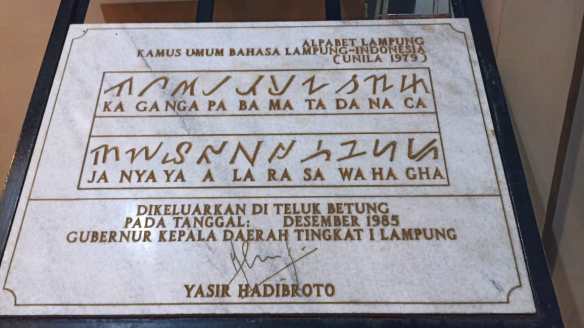 ALFABET LAMPUNG
KAMUS UMUM BAHASA LAMPUNG-INDONESIA
(UNILA 1979)
KA GA NGA PA BA MA TA DA NA CA
JA NYA YA A LA RA SA WA HA GHA
DIKELUARKAN DI TELUK BETUNG
PADA TANGGAL: DESEMBER 1985
GUBERNUR KEPALA DAERAH TINGKAT I LAMPUNG
YASIR HADIBROTO